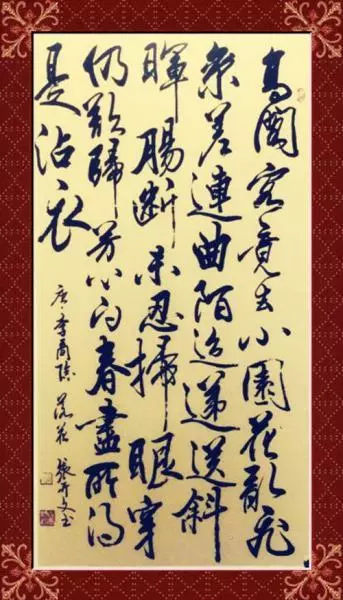 高閣客竟去小園花亂飛
參差連曲陌迢遞送斜
暉腸斷未忍掃眼穿
仍欲歸芳心向春盡所得
是沾衣
唐·李商隱 落花 張